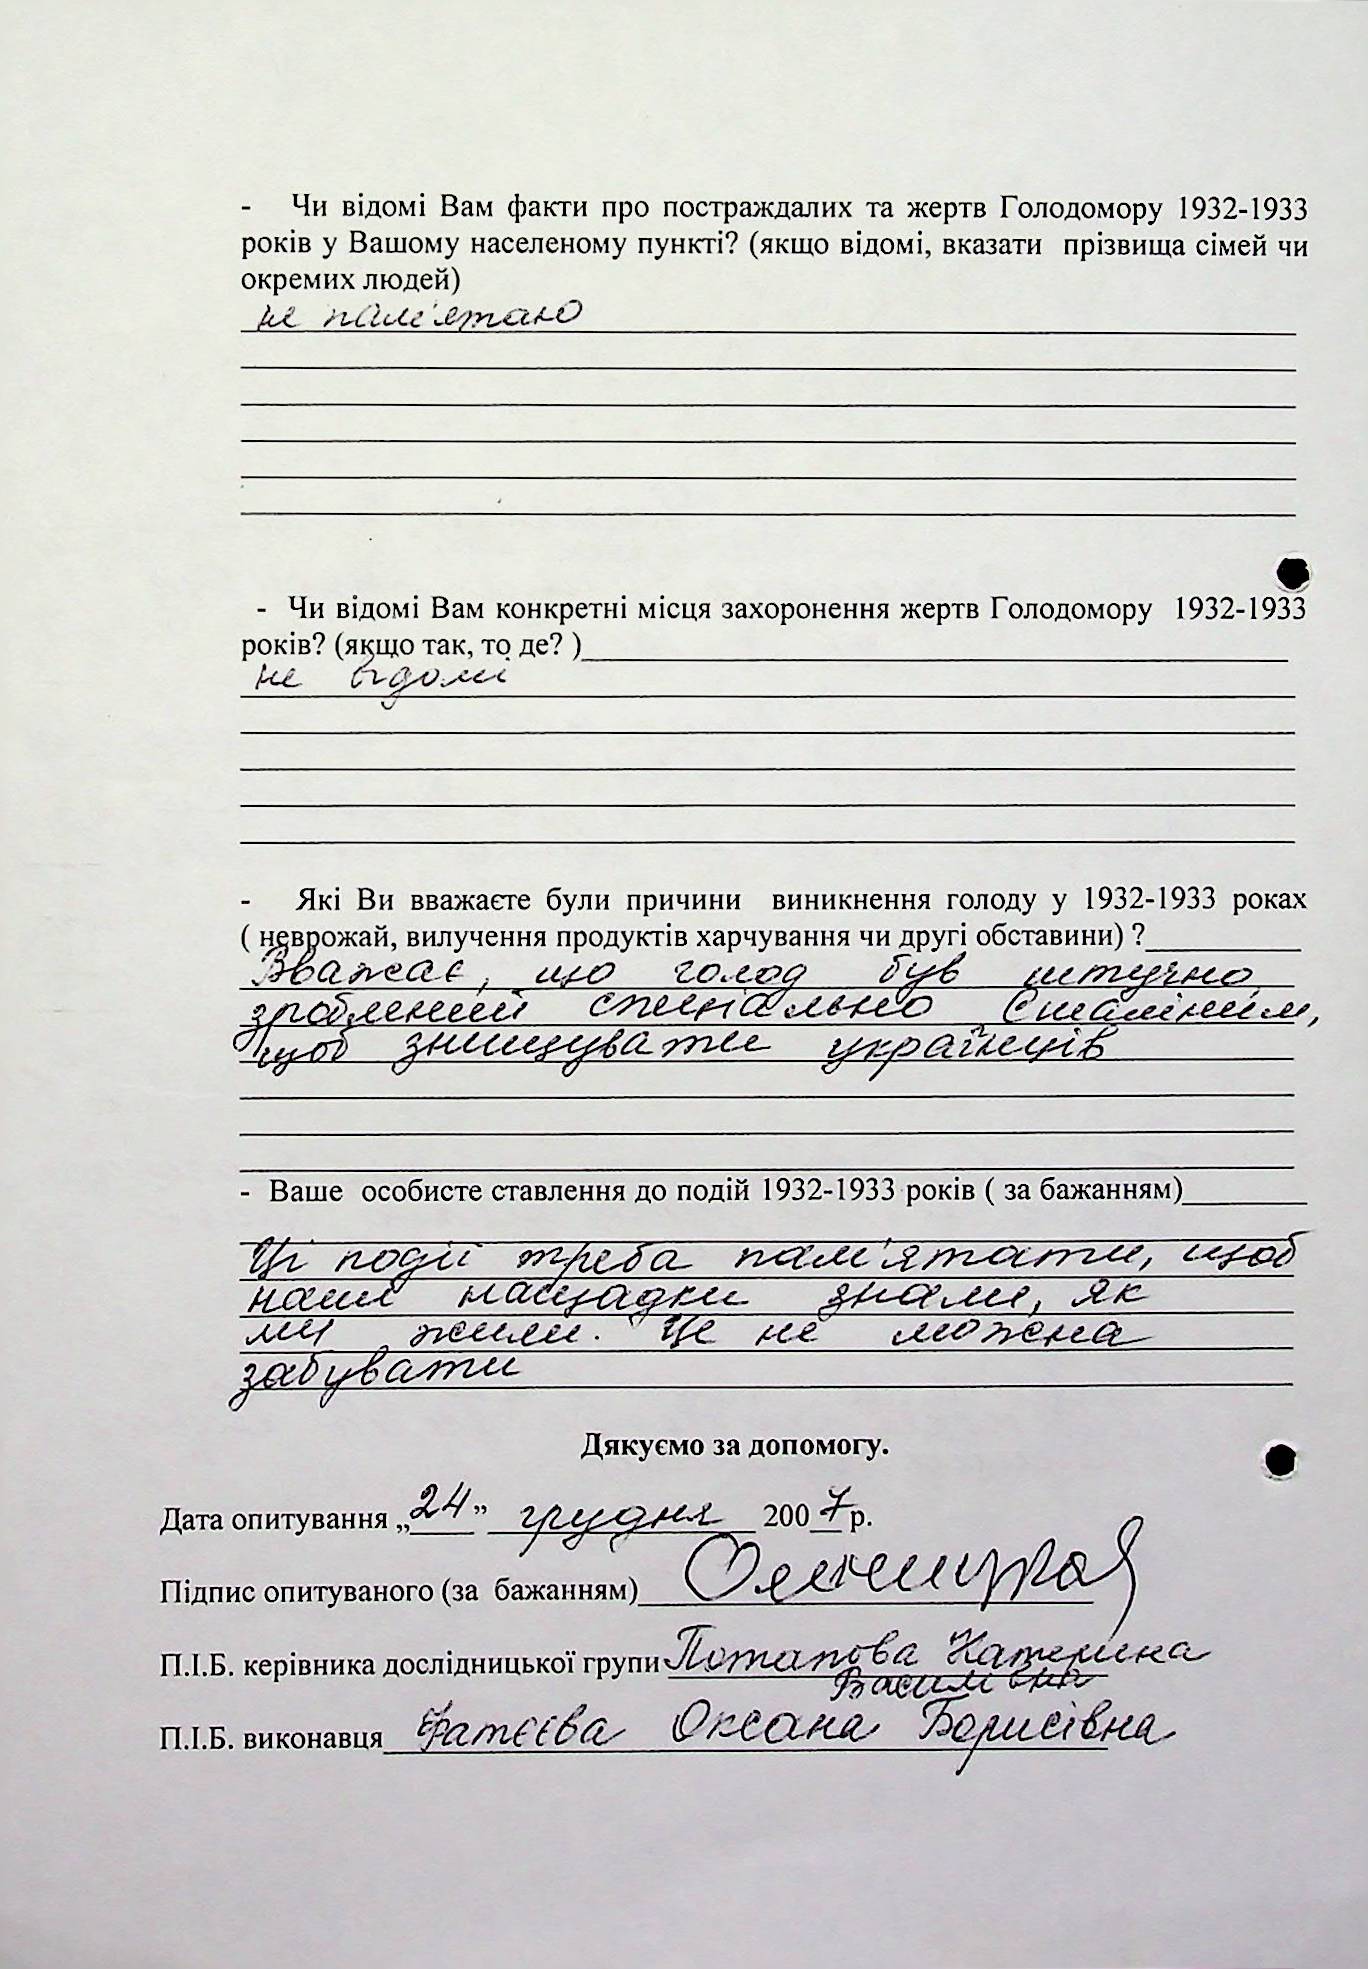 - Чи відомі Вам факти про постраждалих та жертв Голодомору 1932-1933
років у Вашому населеному пункті? (якщо відомі, вказати прізвища сімей чи
окремих людей)
не пам'ятаю
- Чи відомі Вам конкретні місця захоронення жертв Голодомору 1932-1933
років? (якщо так, то де? )
не відомі
- Які Ви вважаєте були причини виникнення голоду у 1932-1933 роках
( неврожай, вилучення продуктів харчування чи другі обставини) ?
Вважає, що голод був штучно
зроблений спеціально Сталіним,
щоб знищувати українців
- Ваше особисте ставлення до подій 1932-1933 років ( за бажанням)
Ці події треба пам'ятати, щоб
наші нащадки знали, як
ми жили. Це не можна
забувати
Дякуємо за допомогу.
Дата опитування „24” грудня 2007 р.
Підпис опитуваного (за бажанням)
П.І.Б. керівника дослідницької групи Потапова Катерина
Василівна
П.І.Б. виконавця Фатєєва Оксана Борисівна